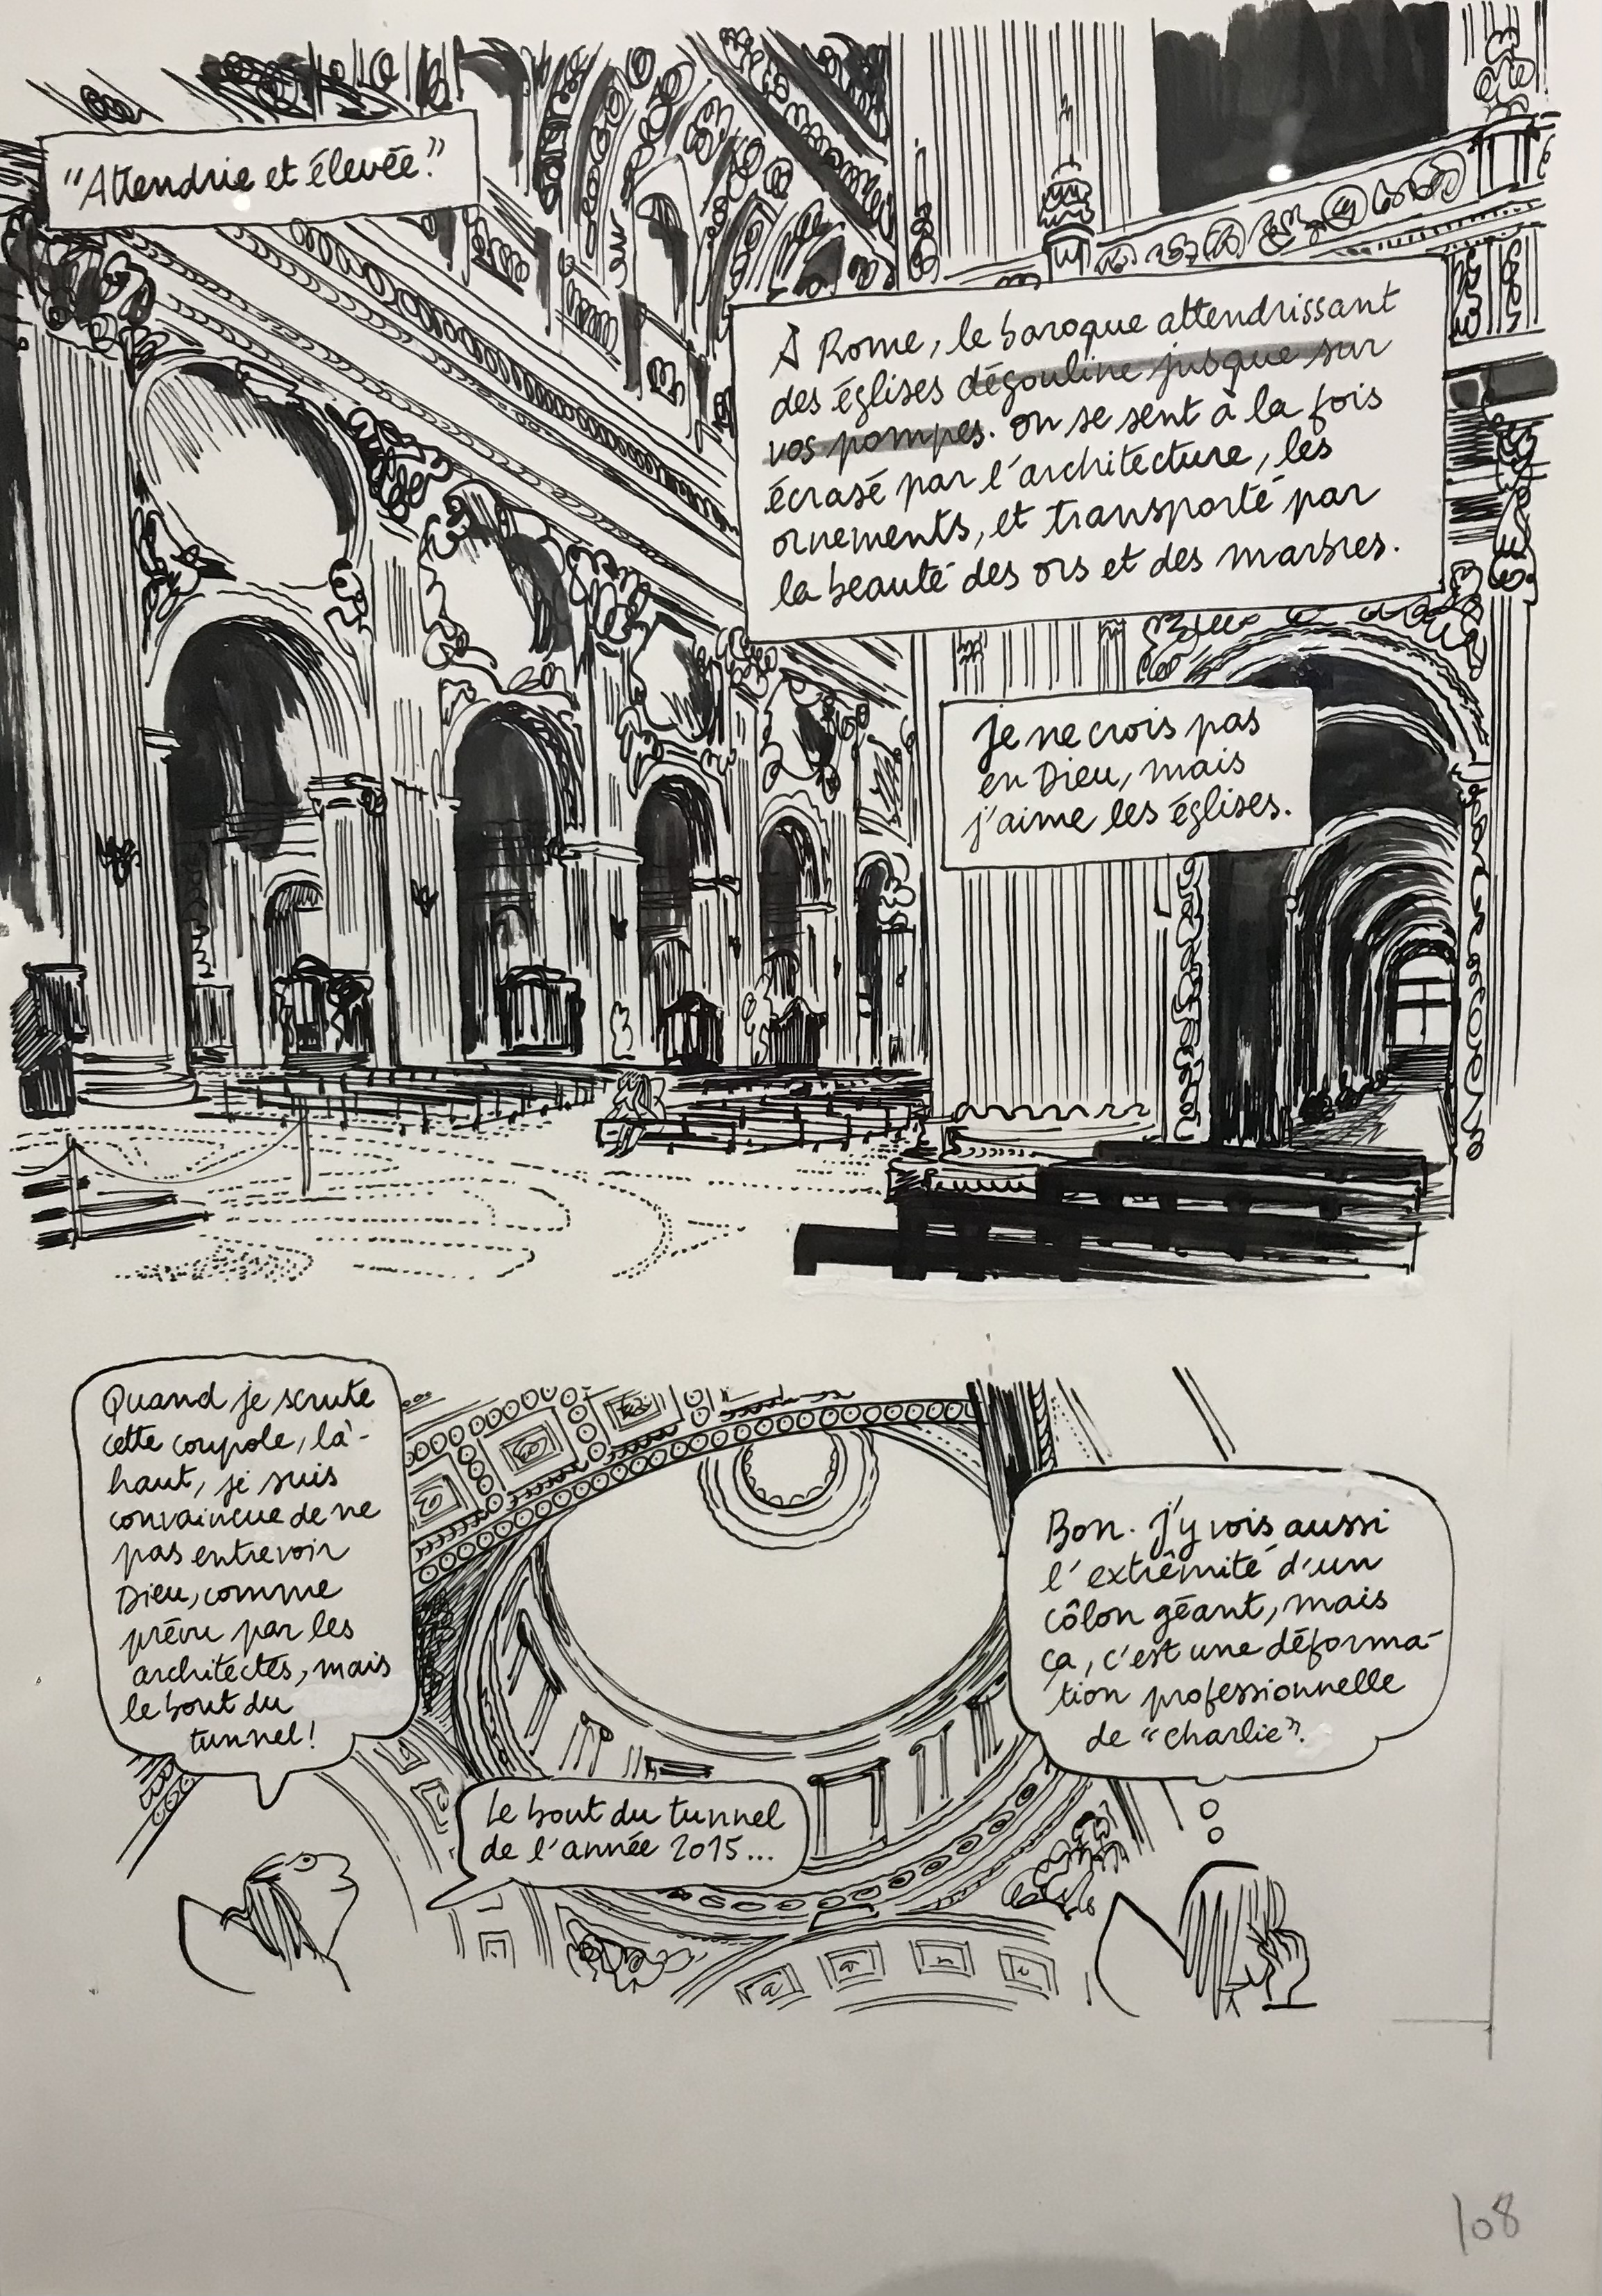 "Attendrie et élevée."
À Rome, le baroque attendrissant
des églises dégouline jusque sur
vos pompes. On se sent à la fois
écrasé par l'architecture, les
ornements, et transporté par
la beauté des ors et des marbres.
Je ne crois pas
en Dieu, mais
j'aime les églises.
Quand je scrute
cette coupole, là-
haut, je suis
convaincue de ne
pas entrevoir
Dieu, comme
prévu par les
architectes, mais
le bout du
tunnel!
Le bout du tunnel
de l'année 2015...
Bon. J'y vois aussi
l'extrêmité d'un
côlon géant, mais
ça, c'est une déforma-
tion professionnelle
de "Charlie".
108